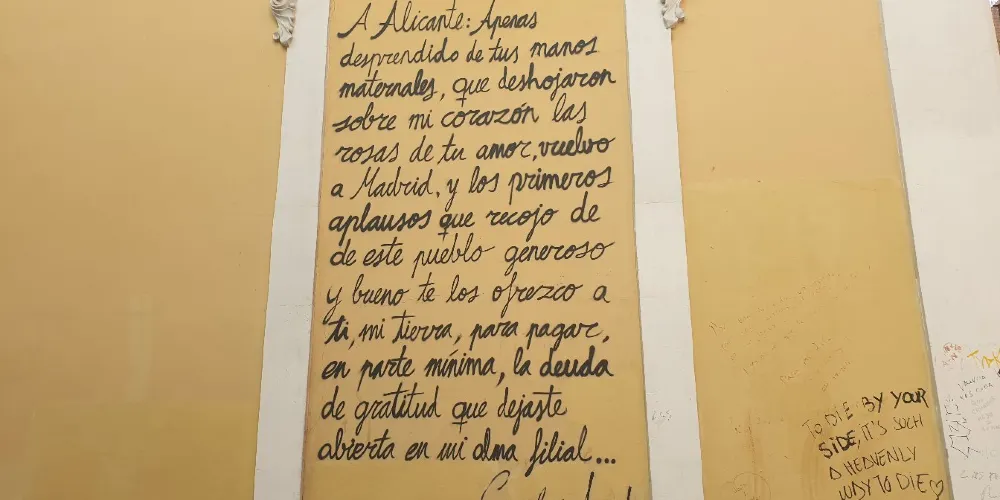 A Alicante: Apenas
desprendido de tus manos
maternales, que deshojaron
sobre mi corazón las
rosas de tu amor, vuelvo
a Madrid, y los primeros
aplausos que recojo de
de este pueblo generoso
y bueno te los ofrezco a
ti, mi tierra, para pagar,
en parte mínima, la deuda
de gratitud que dejaste
abierta en mi alma filial...
TO DIE BY YOUR
SIDE, IT'S SUCH
A HEAVENLY
WAY TO DIE♡